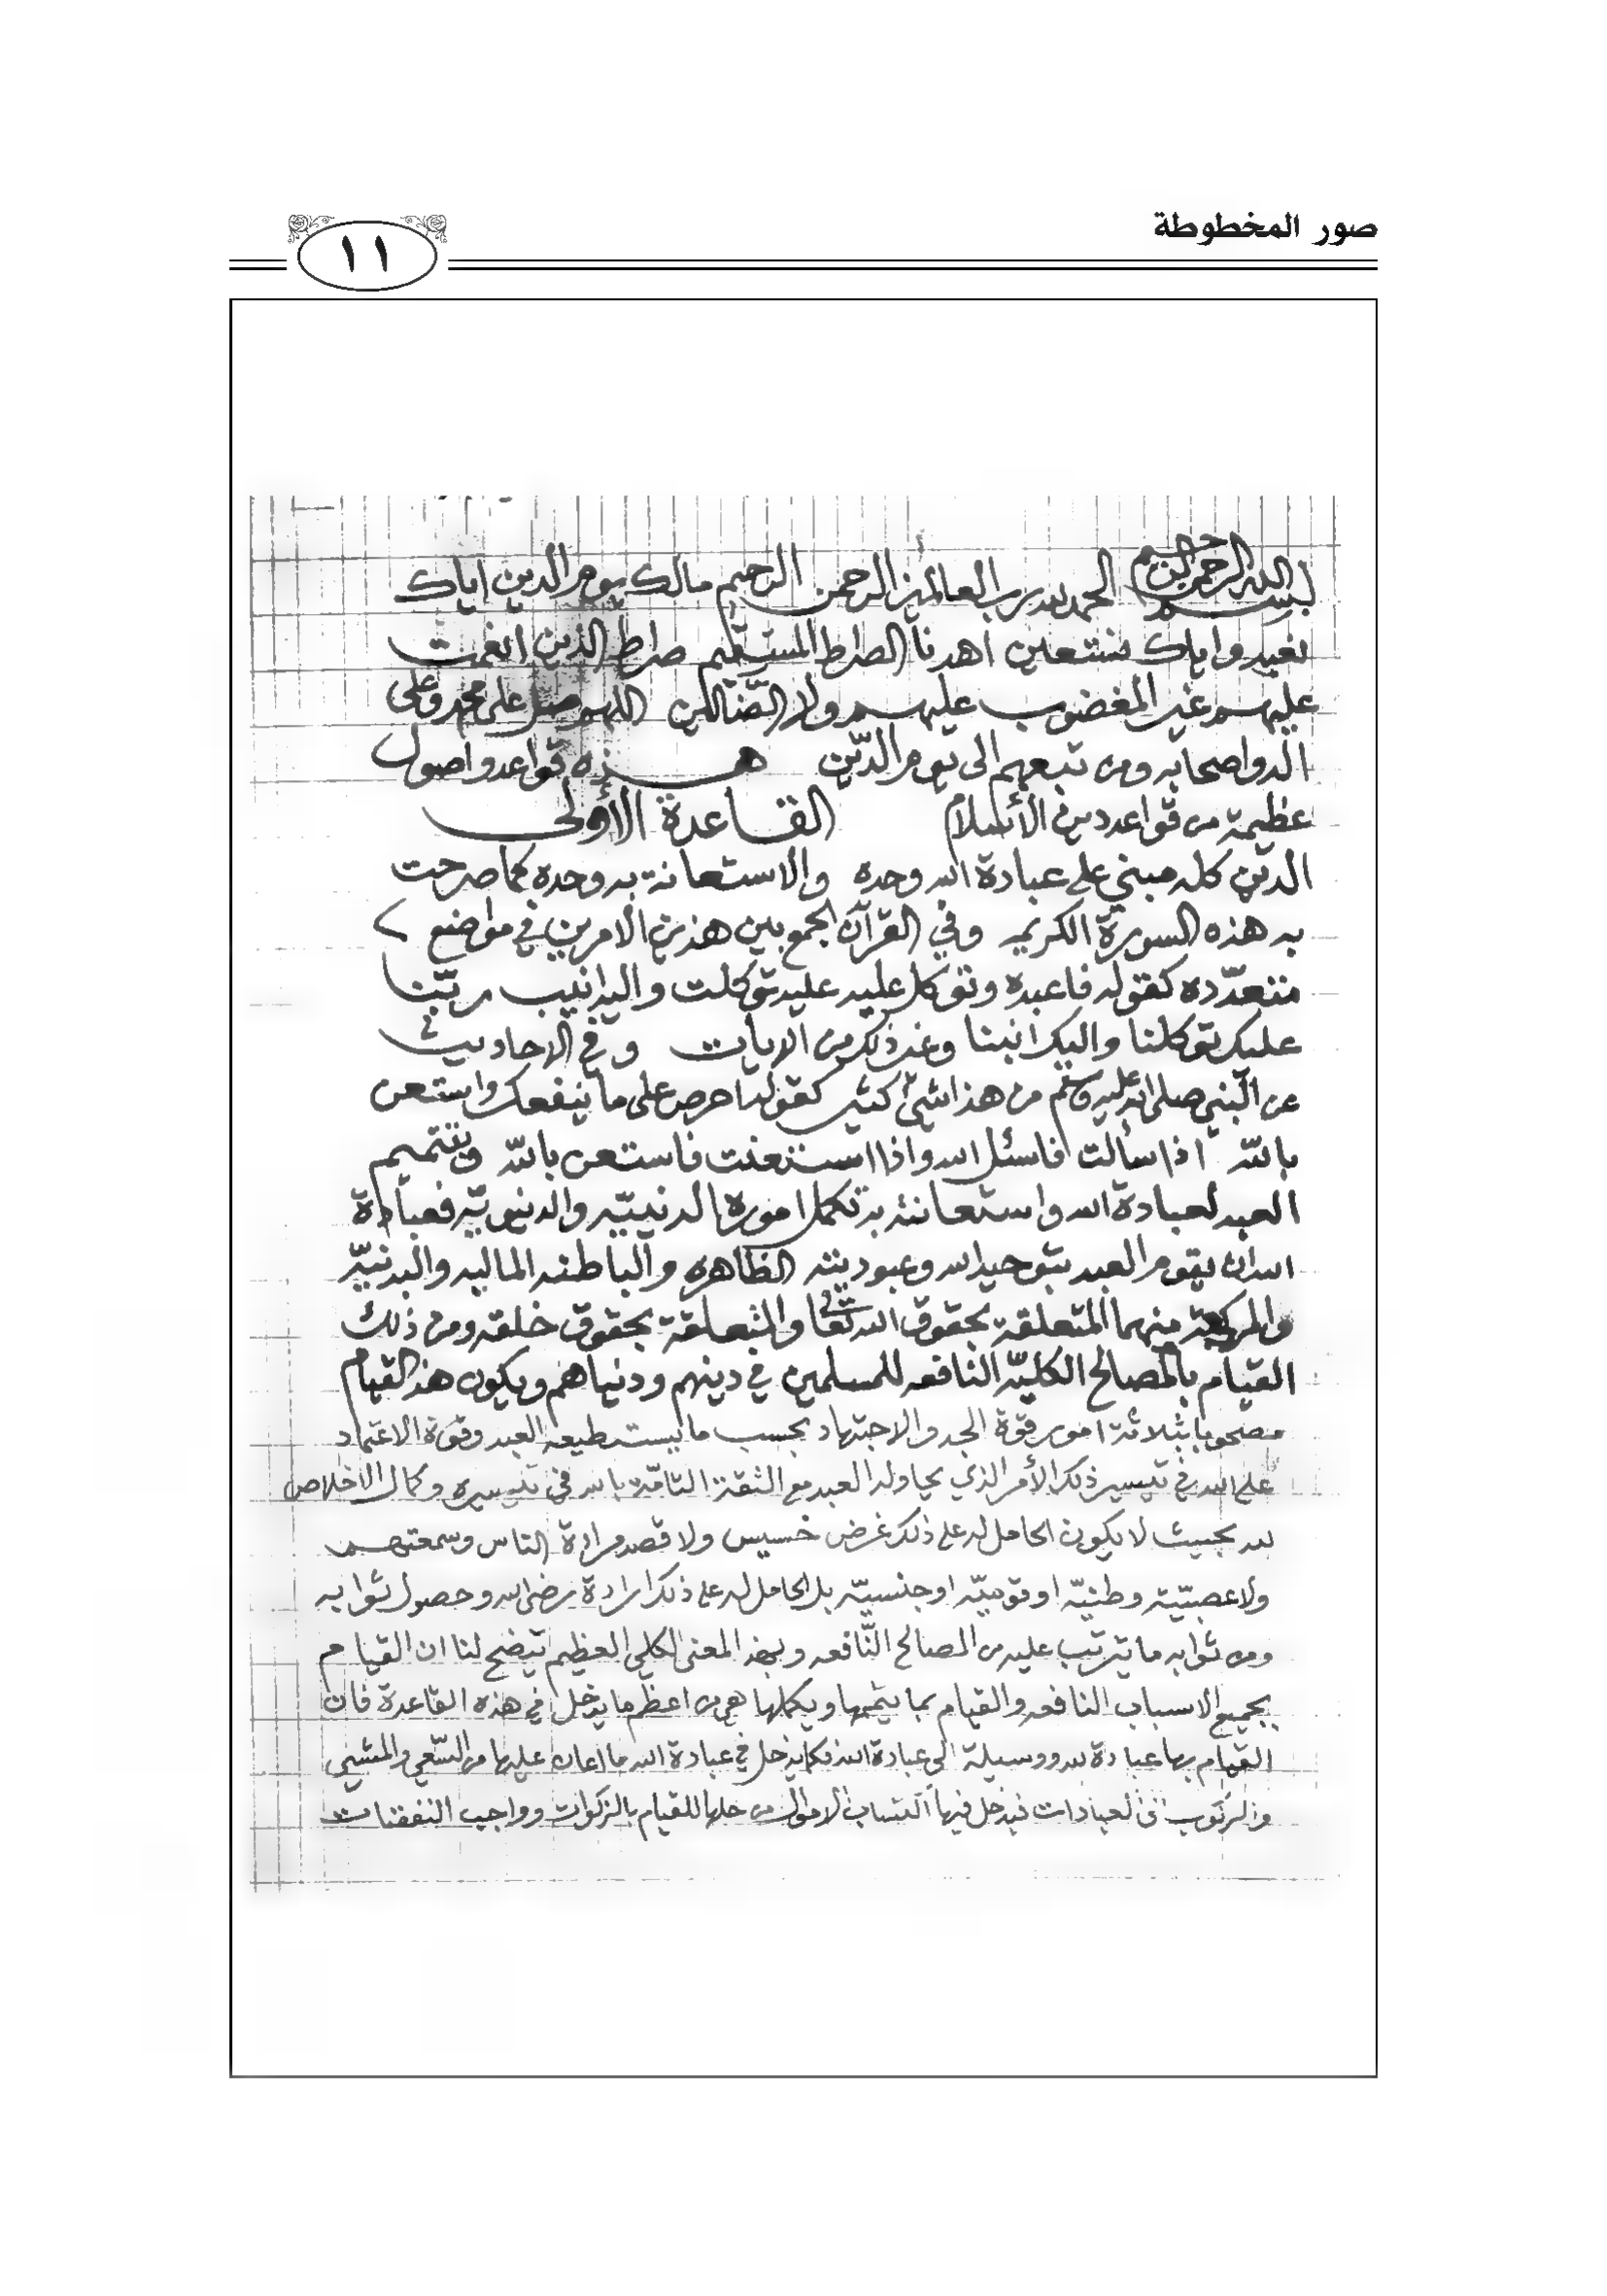 صور المخطوطة
١١
بسم الله الرحمن الرحيم الحمد لله رب العالمين الرحمن الرحيم مالك يوم الدين اياك
نعبد واياك نستعين اهدنا الصراط المستقيم صراط الذين انعمت
عليهم غير المغضوب عليهم ولا الضّالين اللهم صل على محمد وعلى
اله واصحابه ومن تبعهم الى يوم الدّين هذه قواعد واصول
عظيمة من قواعد دين الأسلام القاعدة الأولى
الدين كله مبني على عبادة الله وحده والاستعانة به وحده كما صرحت
به هذه السورة الكريمه وفي القرآن الجمع بين هذين الامرين في مواضع
متعدّده كقوله فاعبده وتوكل عليه عليه توكلت واليه انيب ربّنا
عليك توكلنا واليك انبنا وغير ذلك من الايات وفي الاحاديث
عن النبي صلى الله عليه وسلم من هذا شيئ كثير كقوله احرص على ما ينفعك واستعن
بالله اذا سألت فاسئل الله واذا استعنت فاستعن بالله وبتتميم
العبد لعبادة الله واستعانته به تكمل اموره الدينيّه والدنيويّه فعبادة
الله ان يقوم العبد بتوحيد الله وعبوديته الظاهره والباطنه الماليه والبدنيّه
والمركبة منهما المتعلقة بحقوق الله تعالى والمتعلقة بحقوق خلقه ومن ذلك
القيام بالمصالح الكليّه النافعه للمسلمين في دينهم ودنياهم ويكون هذا القيام
مصحوبا بثلاثة امور قوة الجد والاجتهاد بحسب ما يستطيعه العبد وقوّة الاعتماد
على الله في تيسير ذلك الأمر الذي يحاوله العبد مع الثقة التامّة بالله في تيسيره وكمال الاخلاص
لله بحيث لا يكون الحامل له على ذلك غرض خسيس ولا قصد مراءة الناس وسمعتهم
ولا عصبيّة وطنيّه او قوميّه او جنسيّه بل الحامل له على ذلك ارادة رضى الله وحصول ثوابه
ومن ثوابه ما يترتب عليه من المصالح النّافعه وبهذا المعنى الكلي العظيم يتضح لنا ان القيام
بجميع الاسباب النافعه والقيام بما يتمها ويكملها هي من اعظم ما يدخل في هذه القاعدة فان
القيام بها عبادة لله ووسيلة الى عبادة الله فكما يدخل في عبادة الله ما اعان عليها من السّعي والمشي
والركوب الى العبادات فيدخل فيها اكتساب الاموال من حلها للقيام بالزكوات وواجب النفقات